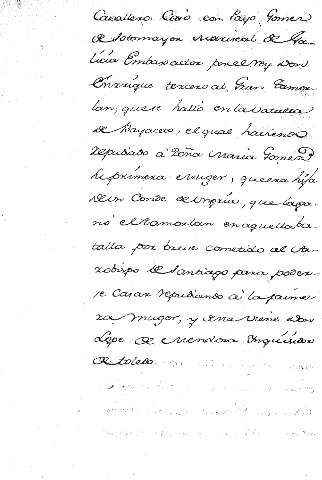 Cavallero, Casó con Payo Gomez
de Sotomayor Mariscal de Ga-
licia Embaxador por el Rey Don
Enrrique tercero al Gran Tamor-
lan, que se halló en la vatalla
de Bayaceto, el qual haviendo
repudiado à Doña Maria Gomez
su primera Muger, que era hija
de un Conde de Ungria, que la ga-
nó el Tamorlan en aquella ba-
talla por breve cometido al Ar-
zobispo de Santiago para poder-
se Casar repudiando à la prime-
ra Muger, y de esta viene Don
Lope de Mendoza Inquisidor
de Toledo.